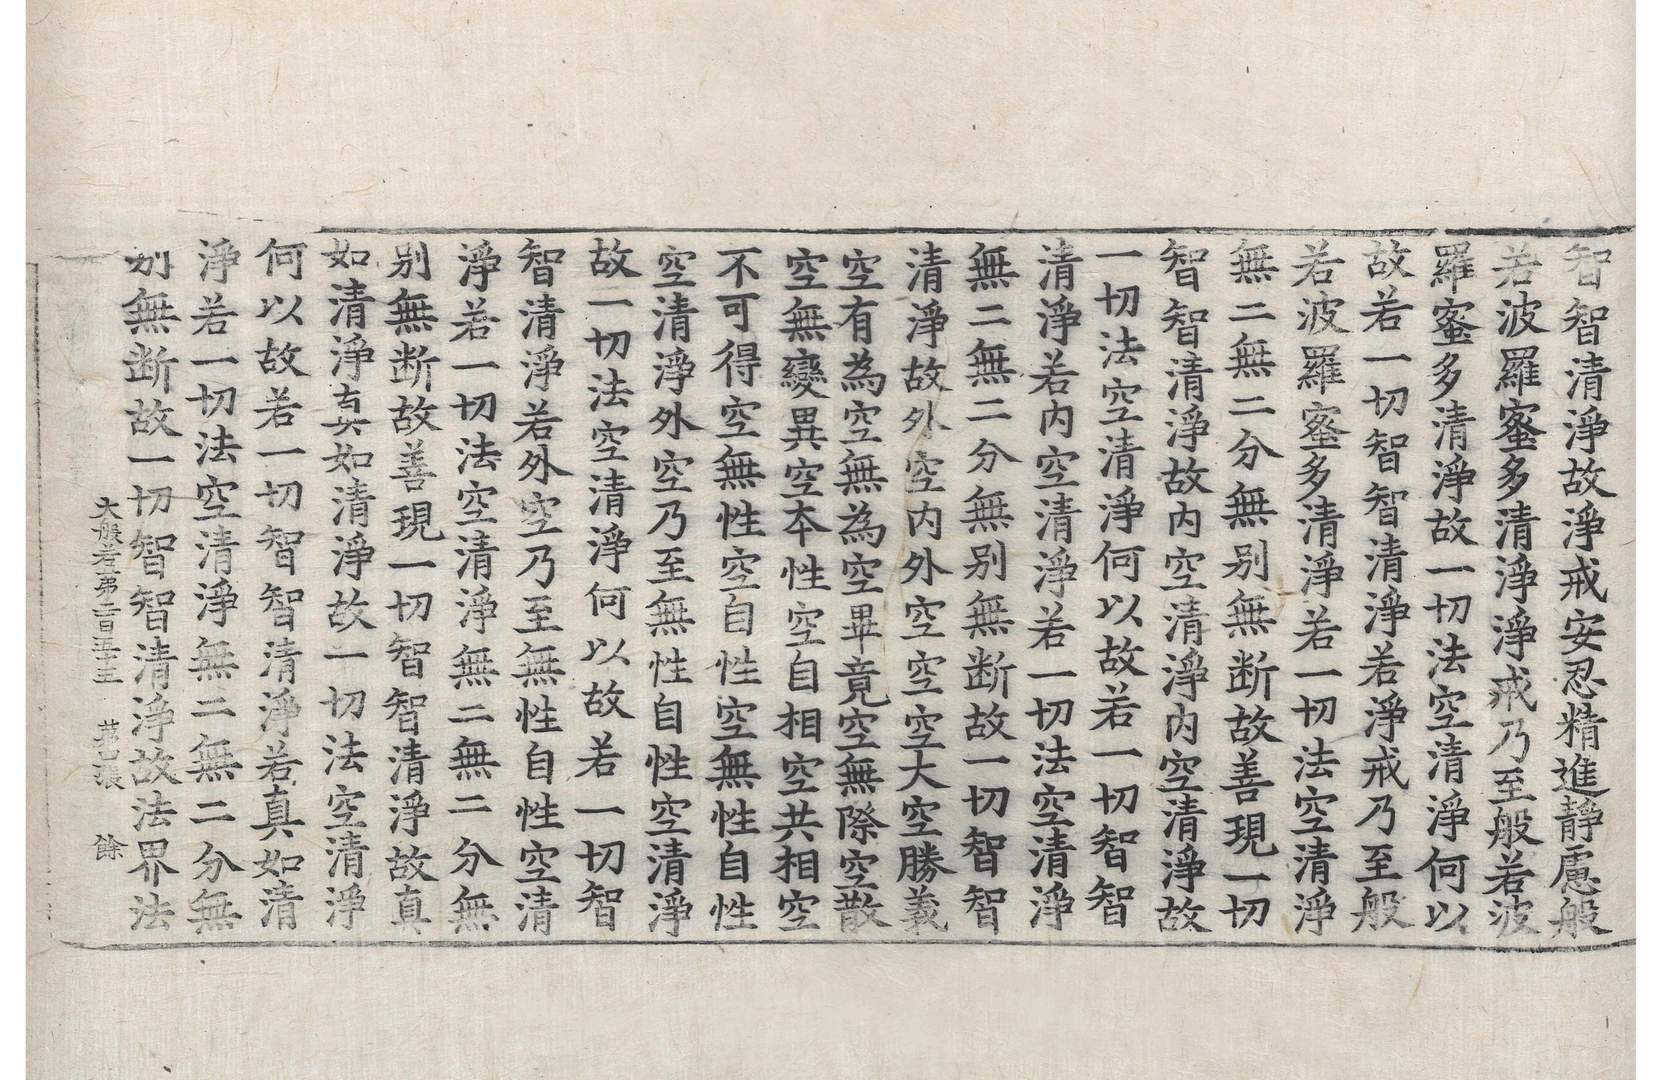 智智清淨故淨戒安忍精進靜慮般
若波羅蜜多清淨淨戒乃至般若波
羅蜜多清淨故一切法空清淨何以
故若一切智智清淨若淨戒乃至般
若波羅蜜多清淨若一切法空清淨
無二無二分無別無断故善現一切
智智清淨故內空清淨內空清淨故
一切法空清淨何以故若一切智智
清淨若內空清淨若一切法空清淨
無二無二分無別無断故一切智智
清淨故外空內外空空空大空勝義
空有為空無為空畢竟空無際空散
空無變異空本性空自相空共相空
不可得空無性空自性空無性自性
空清淨外空乃至無性自性空清淨
故一切法空清淨何以故若一切智
智清淨若外空乃至無性自性空清
淨若一切法空清淨無二無二分無
別無断故善現一切智智清淨故真
如清淨真如清淨故一切法空清淨
何以故若一切智智清淨若真如清
淨若一切法空清淨無二無二分無
別無断故一切智智清淨故法界法
大般若第二百五十 第 張 餘